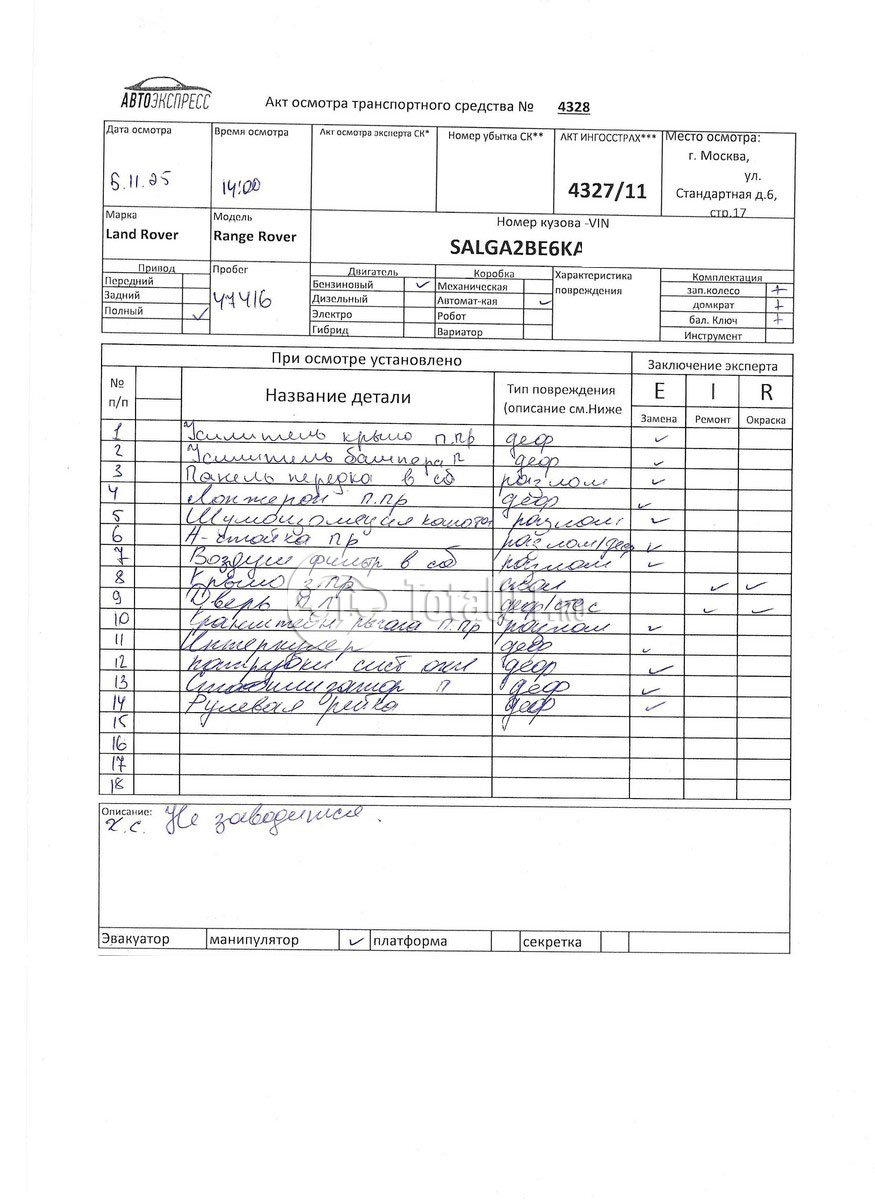 АВТОЭКСПРЕСС
Акт осмотра транспортного средства № 4328
Дата осмотра
Время осмотра
Акт осмотра эксперта СК*
Номер убытка СК**
АКТ ИНГОССТРАХ***
Место осмотра:
г. Москва,
ул.
Стандартная д.6,
стр.17
5.11.25
14:00
4327/11
Марка
Land Rover
Модель
Range Rover
Номер кузова -VIN
SALGA2BE6KA
Привод
Передний
Задний
Полный
Пробег
47416
Двигатель
Бензиновый
Дизельный
Электро
Гибрид
Коробка
Механическая
Автомат-кая
Робот
Вариатор
Характеристика
повреждения
Комплектация
зап.колесо +
домкрат +
бал. Ключ +
Инструмент
При осмотре установлено
Заключение эксперта
№
п/п
Название детали
Тип повреждения
(описание см.Ниже
E I R
Замена Ремонт Окраска
1 Усилитель крыло п.пр деф
2 Усилитель бампера п деф
3 Панель передка в сб разлом
4 Лонжерон п.пр деф
5 Шумоизоляция капота разлом
6 А-стойка пр разлом/деф
7 Воздуш фильтр в сб разлом
8 Крыло з.пр
9 Дверь
10 Кранштейн рычага п.пр разлом
11 Интеркулер деф
12 патрубки сист охл деф
13 Стабилизатор п деф
14 Рулевая рейка деф
15
16
17
18
Total01.RU
Описание:
х.с. Не заводится.
Эвакуатор манипулятор платформа секретка